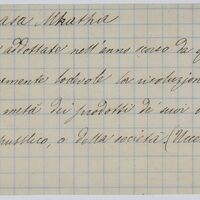 asa Mkathia
adottate nell'anno scorso da q
amente lodevole la risoluzion
metà dei prodotti di suoi o
pubblico, o della società (Ucc